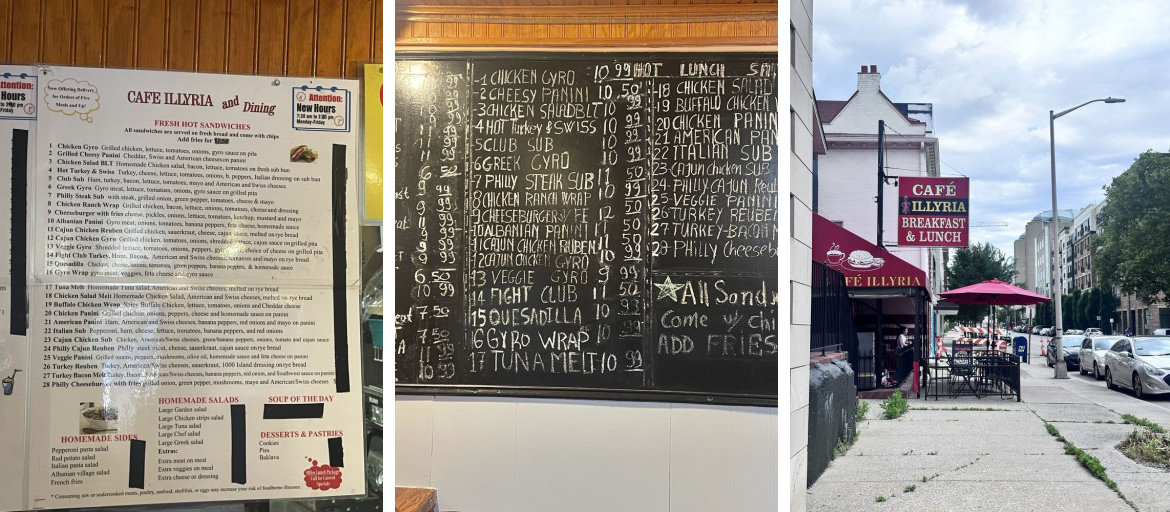 Attention:
Hours
Now Offering Delivery
for Orders of Five
Meals and Up!
CAFE ILLYRIA and Dining
Attention:
New Hours
7:30 am to 2:30 pm
Monday-Friday
FRESH HOT SANDWICHES
All sandwiches are served on fresh bread and come with chips
Add fries for
1 Chicken Gyro Grilled chicken, lettuce, tomatoes, onions, gyro sauce on pita
2 Grilled Cheesy Panini Cheddar, Swiss and American cheeses on panini
3 Chicken Salad BLT Homemade Chicken salad, bacon, lettuce, tomatoes on fresh sub bun
4 Hot Turkey & Swiss Turkey, cheese, lettuce, tomatoes, onions, h. peppers, Italian dressing on sub bun
5 Club Sub Ham, turkey, bacon, lettuce, tomatoes, mayo and American and Swiss cheeses
6 Greek Gyro Gyro meat, lettuce, tomatoes, onions, gyro sauce on grilled pita
7 Philly Steak Sub with steak, grilled onion, green pepper, tomatoes, cheese & mayo
8 Chicken Ranch Wrap Grilled chicken, lettuce, onions, tomatoes, cheese and dressing
9 Cheeseburger with fries cheese, pickles, onions, lettuce, tomatoes, ketchup, mustard and mayo
10 Albanian Panini Gyro meat, onions, tomatoes, banana peppers, feta cheese, homemade
11 Cajun Chicken Reuben Grilled chicken, sauerkraut, cheese, cajun sauce, melted on rye bread
12 Cajun Chicken Gyro Grilled chicken, lettuce, tomatoes, onions, shredded cajun sauce on grilled pita
13 Veggie Gyro Shredded lettuce, choice of cheese on grilled pita
14 Fight Club Turkey, Ham, Bacon, American cheeses, tomatoes and mayo on rye bread
15 Quesadilla onions, green peppers, banana peppers, & homemade sauce
16 Gyro Wrap gyro meat, veggies, feta cheese and gyro sauce
17 Tuna Melt Homemade Tuna salad, American and Swiss cheeses, melted on rye bread
18 Chicken Salad Melt Homemade Chicken Salad, American and Swiss cheeses, melted on rye bread
19 Buffalo Chicken Wrap Spicy Buffalo Chicken, lettuce, tomatoes, onions and Cheddar cheese
20 Chicken Panini Grilled chicken, onions, peppers, cheese and homemade sauce on panini
21 American Panini Ham, American and Swiss cheeses, banana peppers, red onions and mayo on panini
22 Italian Sub Pepperoni, ham, cheese, lettuce, tomatoes, banana peppers, and red onions
23 Cajun Chicken Sub Chicken, American/Swiss cheeses, green/banana peppers, onions, tomato and cajun sauce
24 Philly Cajun Reuben Philly steak meat, cheese, sauerkraut, cajun sauce on rye bread
25 Veggie Panini Grilled onions, peppers, mushrooms, olive oil, homemade sauce and feta cheese on panini
26 Turkey Reuben Turkey, American/Swiss cheeses, sauerkraut, 1000 Island dressing on rye bread
27 Turkey Bacon Melt Turkey, Bacon, American/Swiss cheeses, banana peppers, red onions, and Southwest sauce on panini
28 Philly Cheeseburger with fries grilled onion, green pepper, mushrooms, mayo and American/Swiss cheeses
HOMEMADE SIDES
Pepperoni pasta salad
Red potato salad
Italian pasta salad
Albanian village salad
French fries
HOMEMADE SALADS
Large Garden salad
Large Chicken strips salad
Large Tuna salad
Large Chef salad
Large Greek salad
Extras:
Extra meat on meal
Extra veggies on meal
Extra cheese or dressing
SOUP OF THE DAY
DESSERTS & PASTRIES
Cookies
Pies
Baklava
Offers Lunch Package
Call for Catered
Specials
* Consuming raw or undercooked meats, poultry, seafood, shellfish, or eggs may increase your risk of foodborne illness
-1 CHICKEN GYRO 10 99
-2 CHEESY PANINI 10 50
-3 CHICKEN SALAD BLT 10 99
4 HOT TURKEY & SWISS 10 99
5 CLUB SUB 10 99
6 GREEK GYRO 10 99
7 PHILLY STEAK SUB 11 50
8 CHICKEN RANCH WRAP 10 99
9 CHEESEBURGER W/ FF 12 50
10 ALBANIAN PANINI 11 50
11 CAJUN CHICKEN RUBEN 11 50
12 CAJUN CHICKEN GYRO 10 99
13 VEGGIE GYRO 9 99
14 FIGHT CLUB 11 50
15 QUESADILLA 10 99
16 GYRO WRAP 10 99
17 TUNA MELT 10 99
HOT LUNCH SA
18 CHICKEN SALAD
19 BUFFALO CHICKEN
20 CHICKEN PANIN
21 AMERICAN PAN
22 ITALIAN SUB
23 CAJUN CHICKEN SUB
24 PHILLY CAJUN
25 VEGGIE PANIN
26 TURKEY REUBEN
27 TURKEY-BACON
28 PHILLY Cheeseb
All Sand
Come w/ chi
ADD FRIES
CAFÉ
ILLYRIA
BREAKFAST
& LUNCH
FÉ ILLYRIA